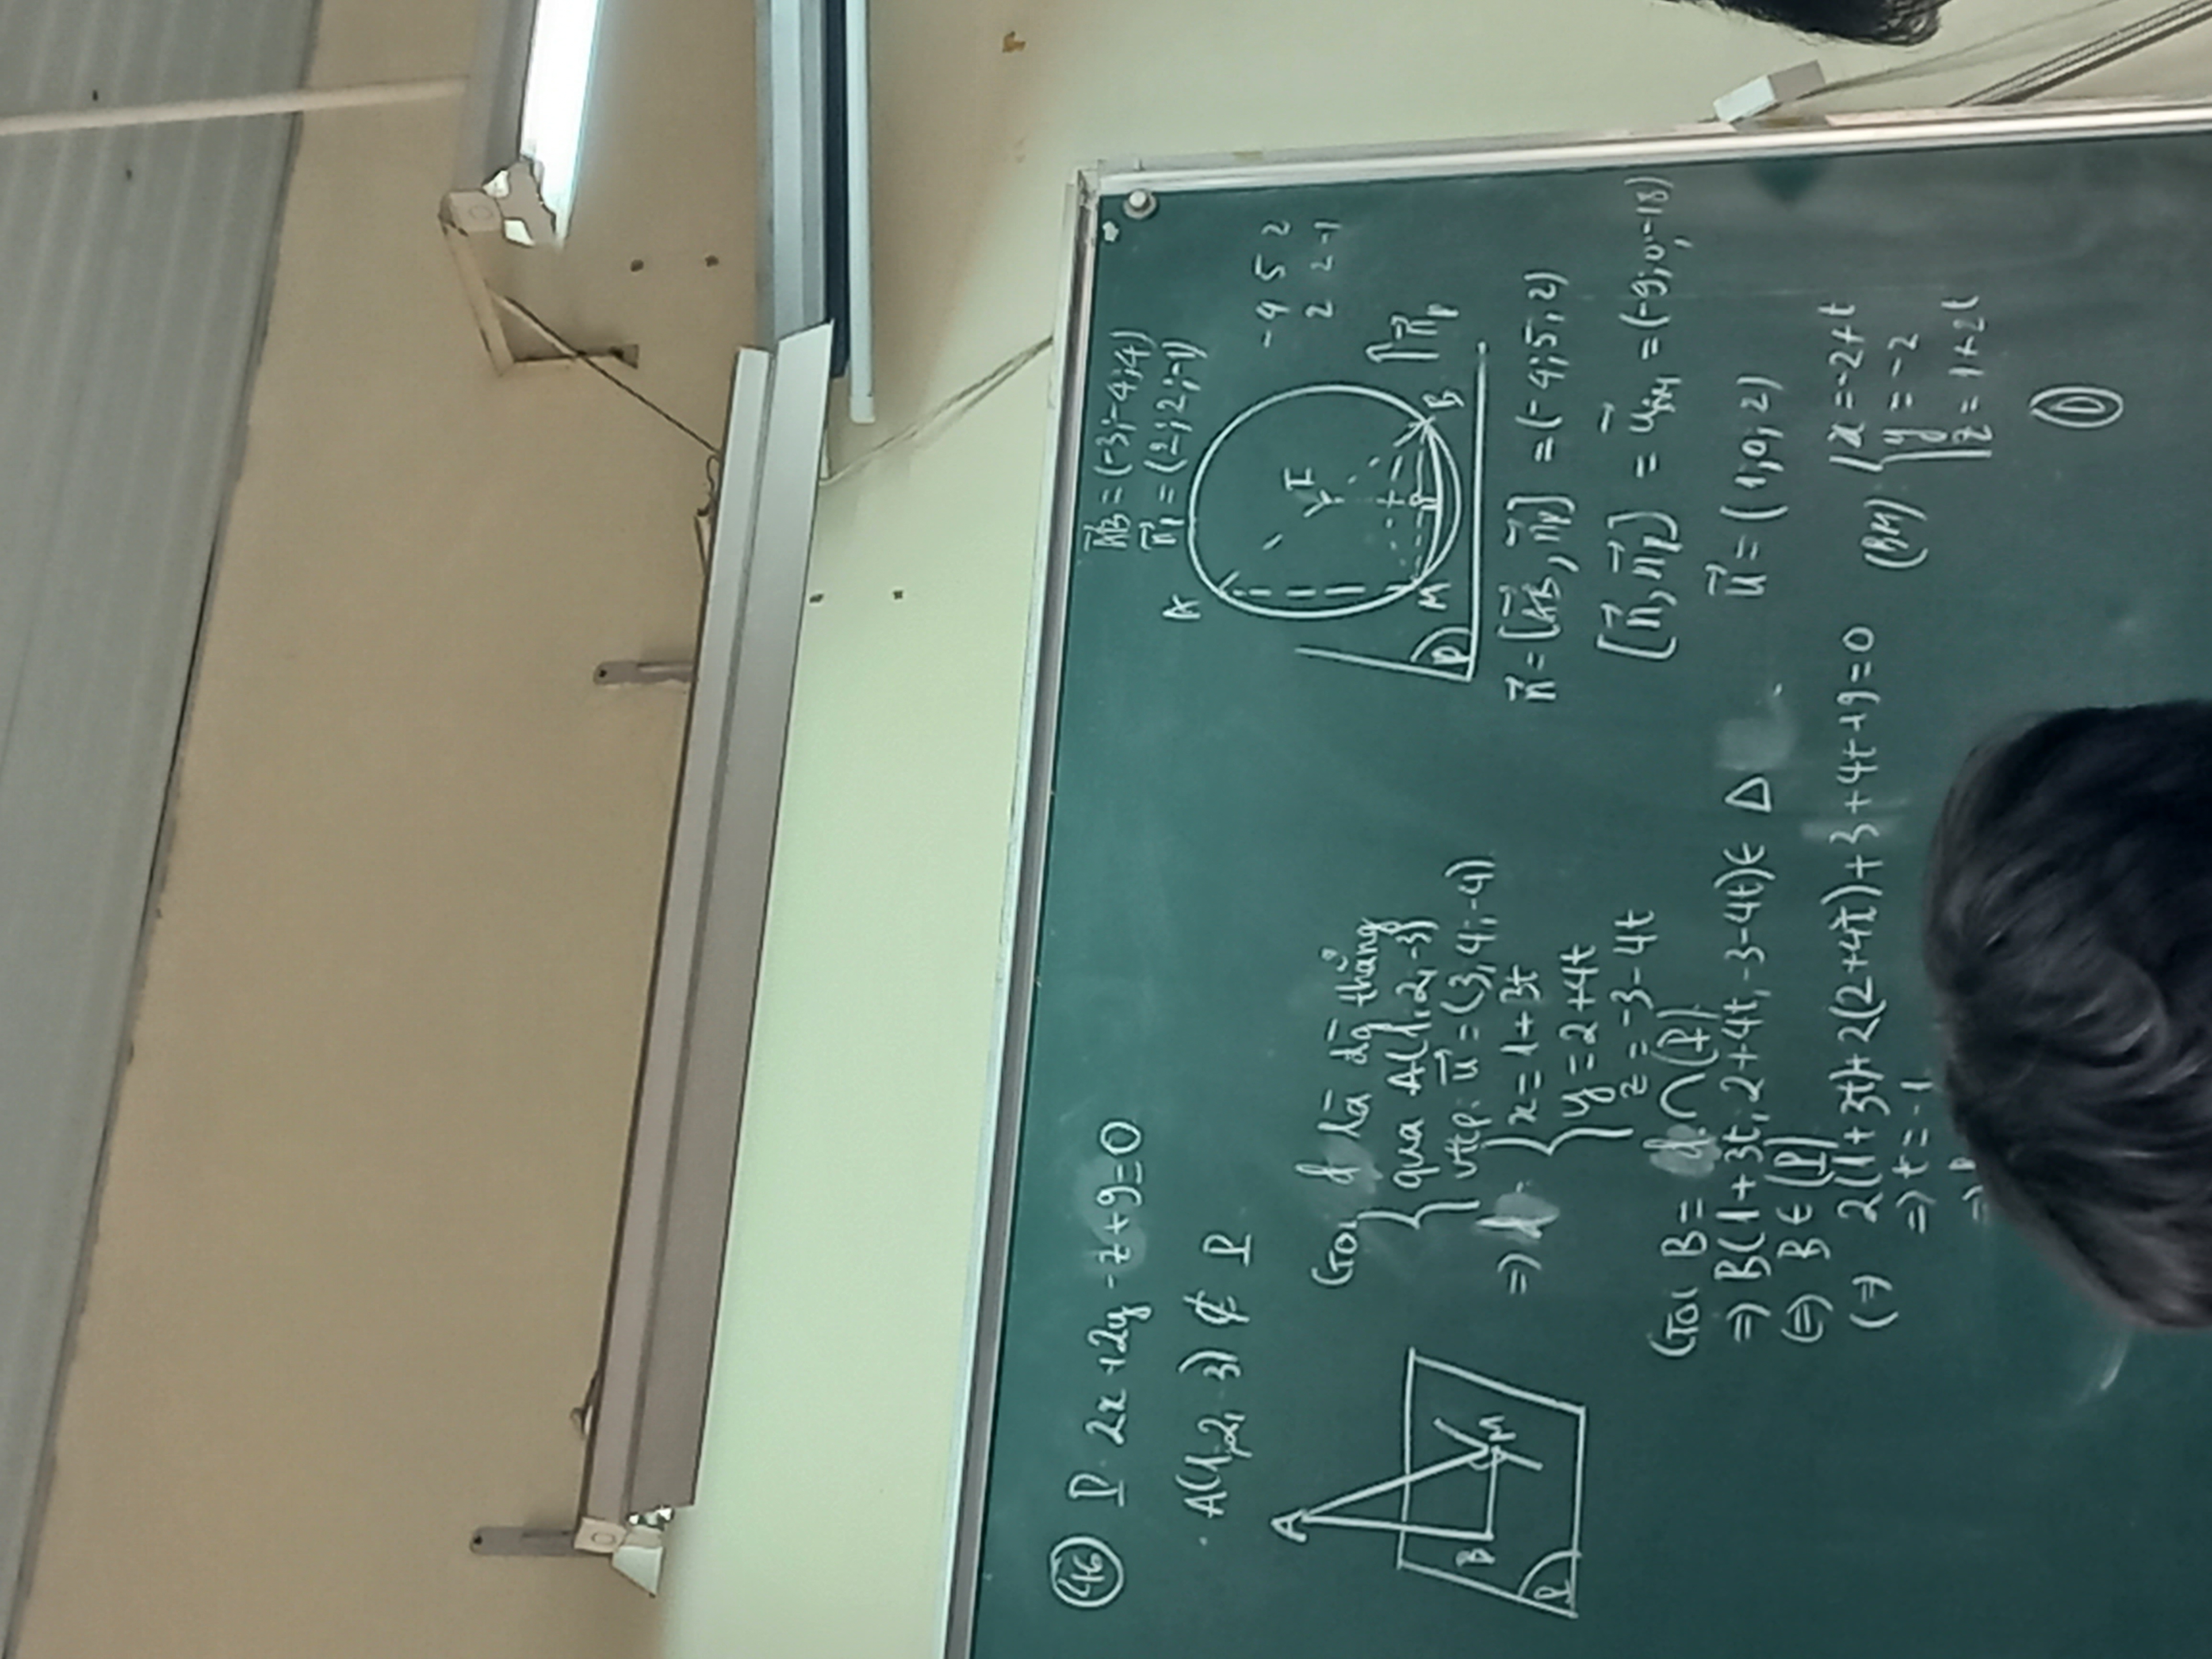 46 P: 2x + 2y - z + 9 = 0
A(1, 2, -3) ∉ P
A
B
M
P
Gọi d là đg thẳng
qua A(1, 2, -3)
vtcp: u⃗ = (3, 4; -4)
=> d: { x = 1 + 3t
y = 2 + 4t
z = -3 - 4t
Gọi B = d ∩ (P)
=> B(1 + 3t, 2 + 4t, -3 - 4t) ∈ Δ
<=> B ∈ (P)
<=> 2(1 + 3t) + 2(2 + 4t) + 3 + 4t + 9 = 0
=> t = -1
=> B
AB⃗ = (-3; -4; 4)
n⃗p = (2; 2; -1)
A
I
M
B
P
n⃗p
-4 5 2
2 2 -1
n⃗ = [AB⃗, n⃗p] = (-4; 5, 2)
[n⃗, n⃗p] = u⃗BM = (-9; 0; -18)
u⃗ = (1; 0; 2)
(BM) { x = -2 + t
y = -2
z = 1 + 2t
D